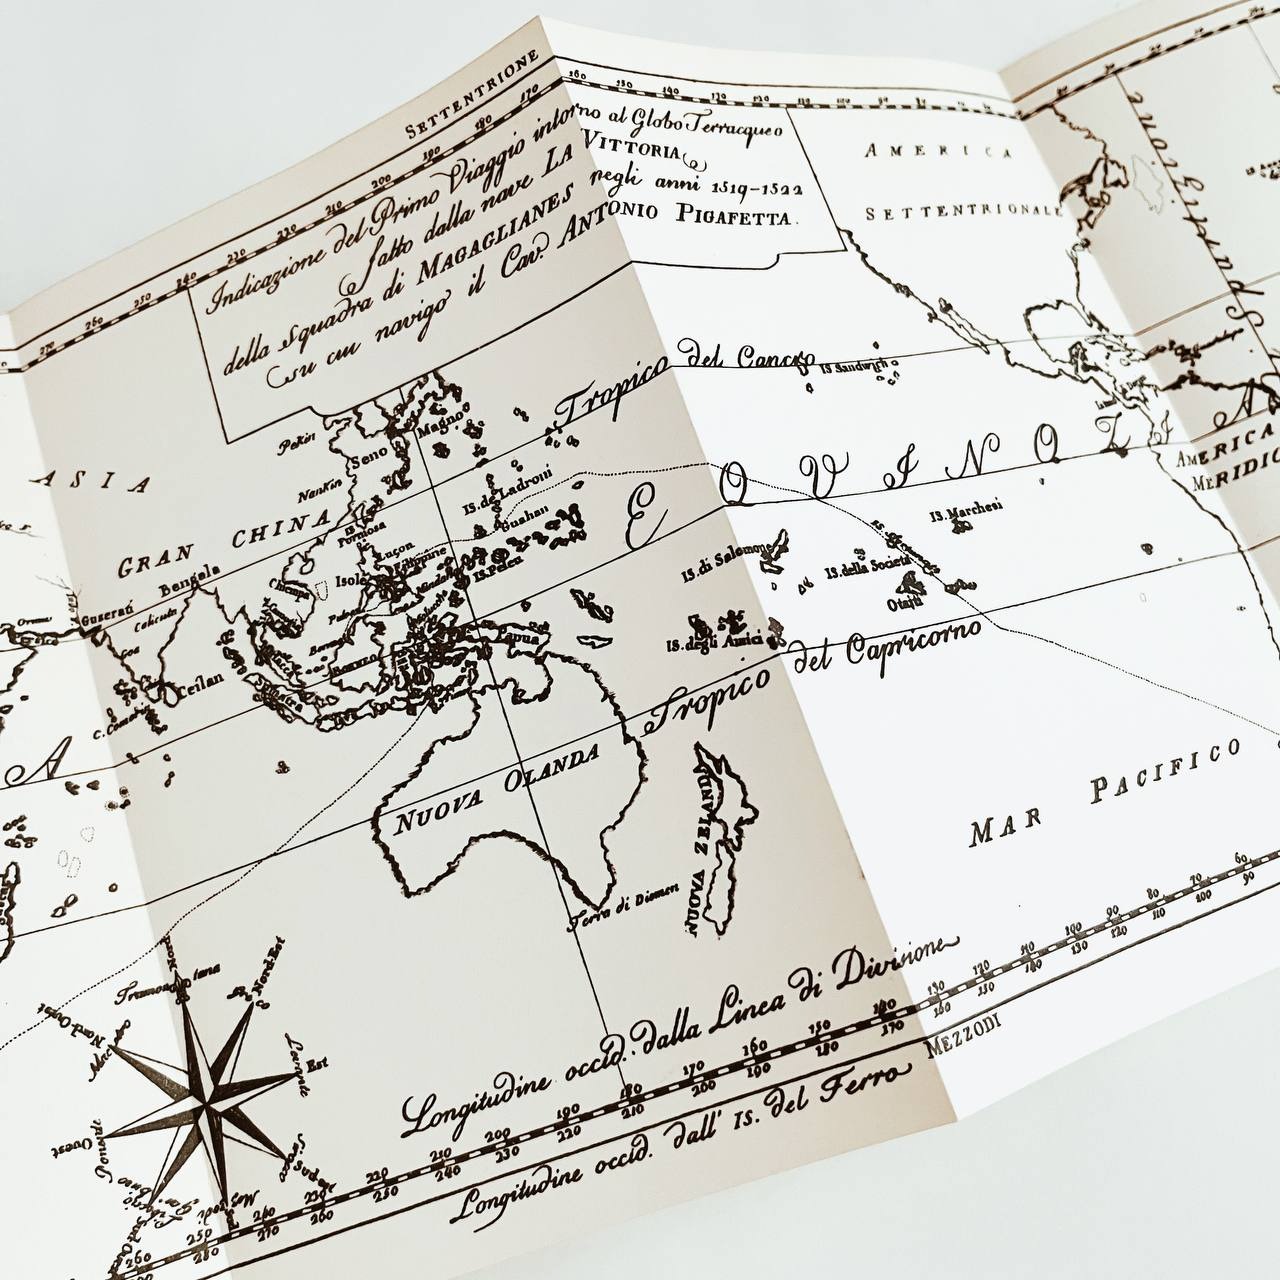 SETTENTRIONE
Indicazione del Primo Viaggio intorno al Globo Terracqueo
fatto dalla nave LA VITTORIA
della squadra di MAGAGLIANES negli anni 1519-1522
su cui navigò il Cav. ANTONIO PIGAFETTA.
AMERICA
SETTENTRIONALE
Tropico del Cancro
IS Sandwich
ASIA
Pekin
Seno
Magno
Nankin
GRAN CHINA
IS. de Ladroni
Guahan
EQUINOZI
AMERICA
MERIDIO
Formosa
Luçon
Isole
Filippine
IS. Peleu
Bengala
Guserat
Calicutu
Goa
Ceilan
C. Comorin
Ciempa
Borneo
Papua
IS. di Salomone
IS. della Società
IS. Marchesi
Otaiti
IS. degli Amici
Tropico del Capricorno
NUOVA OLANDA
NUOVA ZELANDA
Terra di Diemen
MAR PACIFICO
Tramontana
Nord-Est
Nord-Ouest
Levante
Est
Ouest
Longitudine occid. dalla Linea di Divisione
240 220 210 200 190 180 170 160 150 140 130 120 110 100 90 80 70 60
280 270 260 250 240 230 220 210 200 190 180 170 160 150 140 130 120 110 100 90
MEZZODI
Longitudine occid. dall' IS. del Ferro